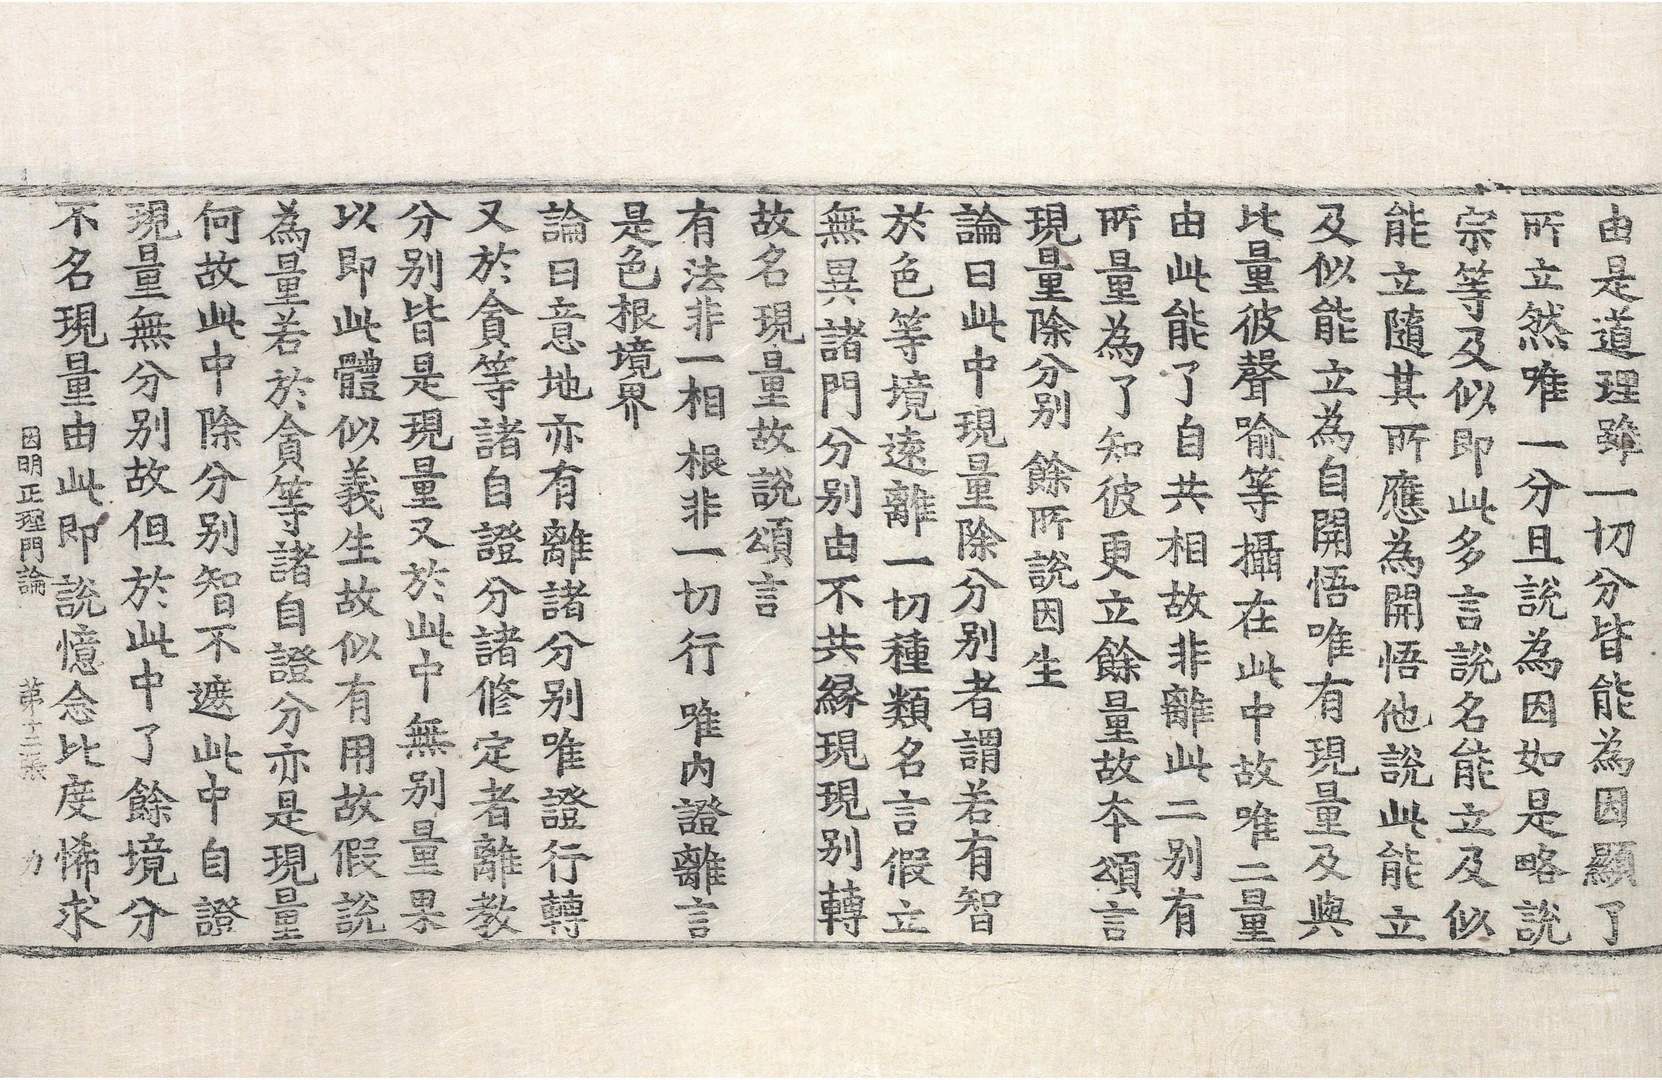 由是道理雖一切分皆能為因顯了
所立然唯一分且說為因如是略說
宗等及似即此多言說名能立及似
能立隨其所應為開悟他說此能立
及似能立為自開悟唯有現量及與
比量彼聲喻等攝在此中故唯二量
由此能了自共相故非離此二別有
所量為了知彼更立餘量故本頌言
現量除分別 餘所說因生
論曰此中現量除分別者謂若有智
於色等境遠離一切種類名言假立
無異諸門分別由不共緣現現別轉
故名現量故說頌言
有法非一相 根非一切行 唯內證離言
是色根境界
論曰意地亦有離諸分別唯證行轉
又於貪等諸自證分諸修定者離教
分別皆是現量又於此中無別量果
以即此體似義生故似有用故假說
為量若於貪等諸自證分亦是現量
何故此中除分別智不遮此中自證
現量無分別故但於此中了餘境分
不名現量由此即說憶念比度悕求
因明正理門論 第十二張 力